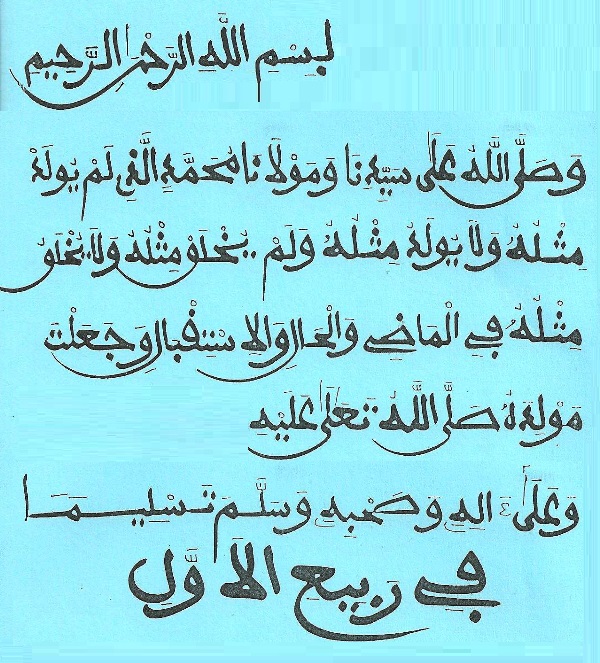 بِسْمِ اللَّهِ الرَّحْمَٰنِ الرَّحِيمِ
وَصَلَّى اللَّهُ عَلَى سَيِّدِنَا وَمَوْلَانَا مُحَمَّدٍ الَّذِي لَمْ يُولَدْ
مِثْلُهُ وَلَا يُولَدُ مِثْلُهُ وَلَمْ يُخْلَقْ مِثْلُهُ وَلَا يُخْلَقُ
مِثْلُهُ فِي الْمَاضِي وَالْحَالِ وَالِاسْتِقْبَالِ وَجَعَلْتَ
مَوْلِدَهُ صَلَّى اللَّهُ تَعَلَى عَلَيْهِ
وَعَلَى ءَالِهِ وَصَحْبِهِ وَسَلَّمَ تَسْلِيمًا
فِي رَبِيعِ الْأَوَّلِ